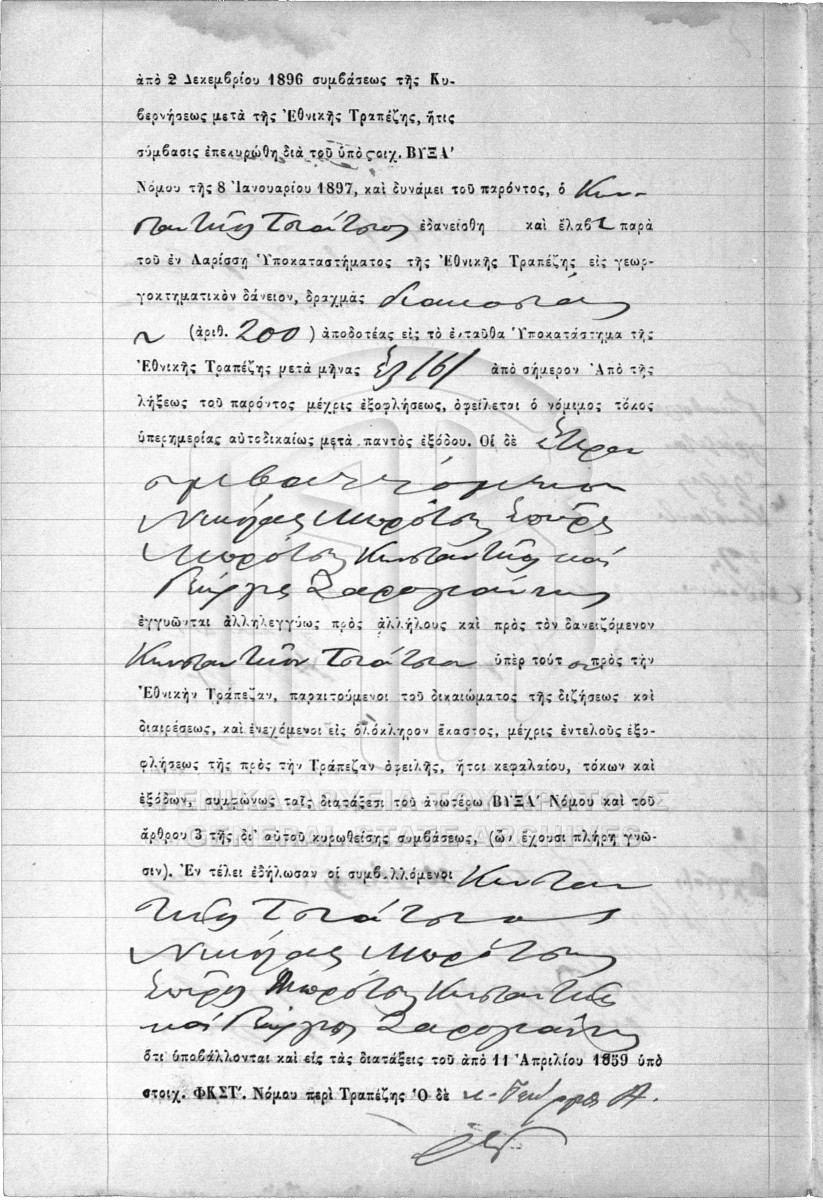 ἀπὸ 2 Δεκεμβρίου 1896 συμβάσεως τῆς Κυ-
βερνήσεως μετὰ τῆς Ἐθνικῆς Τραπέζης, ἥτις
σύμβασις ἐπεκυρώθη διὰ τοῦ ὑπὸ στοιχ. ΒΥΞΑʹ
Νόμου τῆς 8 Ἰανουαρίου 1897, καὶ δυνάμει τοῦ παρόντος, ὁ Κων-
σταντῆς Τσιάτσιος ἐδανείσθη καὶ ἔλαβε παρὰ
τοῦ ἐν Λαρίσσῃ Ὑποκαταστήματος τῆς Ἐθνικῆς Τραπέζης εἰς γεωρ-
γοκτηματικὸν δάνειον, δραχμὰς διακοσίας
(ἀριθ. 200) ἀποδοτέας εἰς τὸ ἐνταῦθα Ὑποκατάστημα τῆς
Ἐθνικῆς Τραπέζης μετὰ μῆνας ἓξ /6/ ἀπὸ σήμερον Ἀπὸ τῆς
λήξεως τοῦ παρόντος μέχρις ἐξοφλήσεως, ὀφείλεται ὁ νόμιμος τόκος
ὑπερημερίας αὐτοδικαίως μετὰ παντὸς ἐξόδου. Οἱ δὲ ἕτεροι
συμβαλλόμενοι
Νικόλαος Μπρότσης Σπῦρος
Μπρότσης Κωνσταντῆς καὶ
Γεώργιος
ἐγγυῶνται ἀλληλεγγύως πρὸς ἀλλήλους καὶ πρὸς τὸν δανειζόμενον
Κωνσταντῖνον Τσιάτσιον ὑπὲρ τούτου πρὸς τὴν
Ἐθνικὴν Τράπεζαν, παραιτούμενοι τοῦ δικαιώματος τῆς διζήσεως καὶ
διαιρέσεως, καὶ ἐνεχόμενοι εἰς ὁλόκληρον ἕκαστος, μέχρις ἐντελοῦς ἐξο-
φλήσεως τῆς πρὸς τὴν Τράπεζαν ὀφειλῆς, ἤτοι κεφαλαίου, τόκων καὶ
ΓΕΝΙΚΑ ΑΡΧΕΙΑ ΤΟΥ ΚΡΑΤΟΥΣ
ἐξόδων, συμφώνως ταῖς διατάξεσι τοῦ ἀνωτέρω ΒΥΞΑʹ Νόμου καὶ τοῦ
GENERAL STATE ARCHIVES
ἄρθρου 3 τῆς δι' αὐτοῦ κυρωθείσης συμβάσεως, (ὧν ἔχουσι πλήρη γνῶ-
σιν). Ἐν τέλει ἐδήλωσαν οἱ συμβαλλόμενοι Κωνσταν
τῆς Τσιάτσιος
Νικόλαος Μπρότσης
Σπῦρος Μπρότσης Κωνσταντῆς
καὶ Γεώργιος
ὅτι ὑποβάλλονται καὶ εἰς τὰς διατάξεις τοῦ ἀπὸ 11 Ἀπριλίου 1859 ὑπὸ
στοιχ. ΦΚΣΤʹ. Νόμου περὶ Τραπέζης Ὁ δὲ κ. Γεώργιος Α.